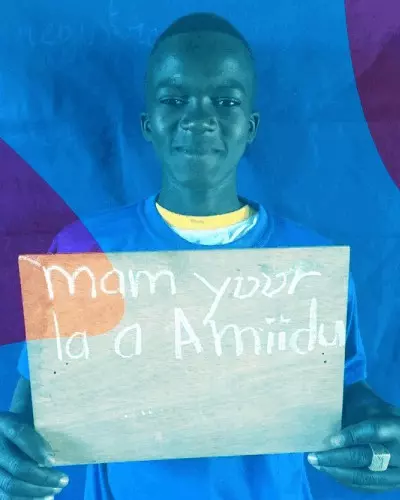 mam yʋʋr
la a Amiidu